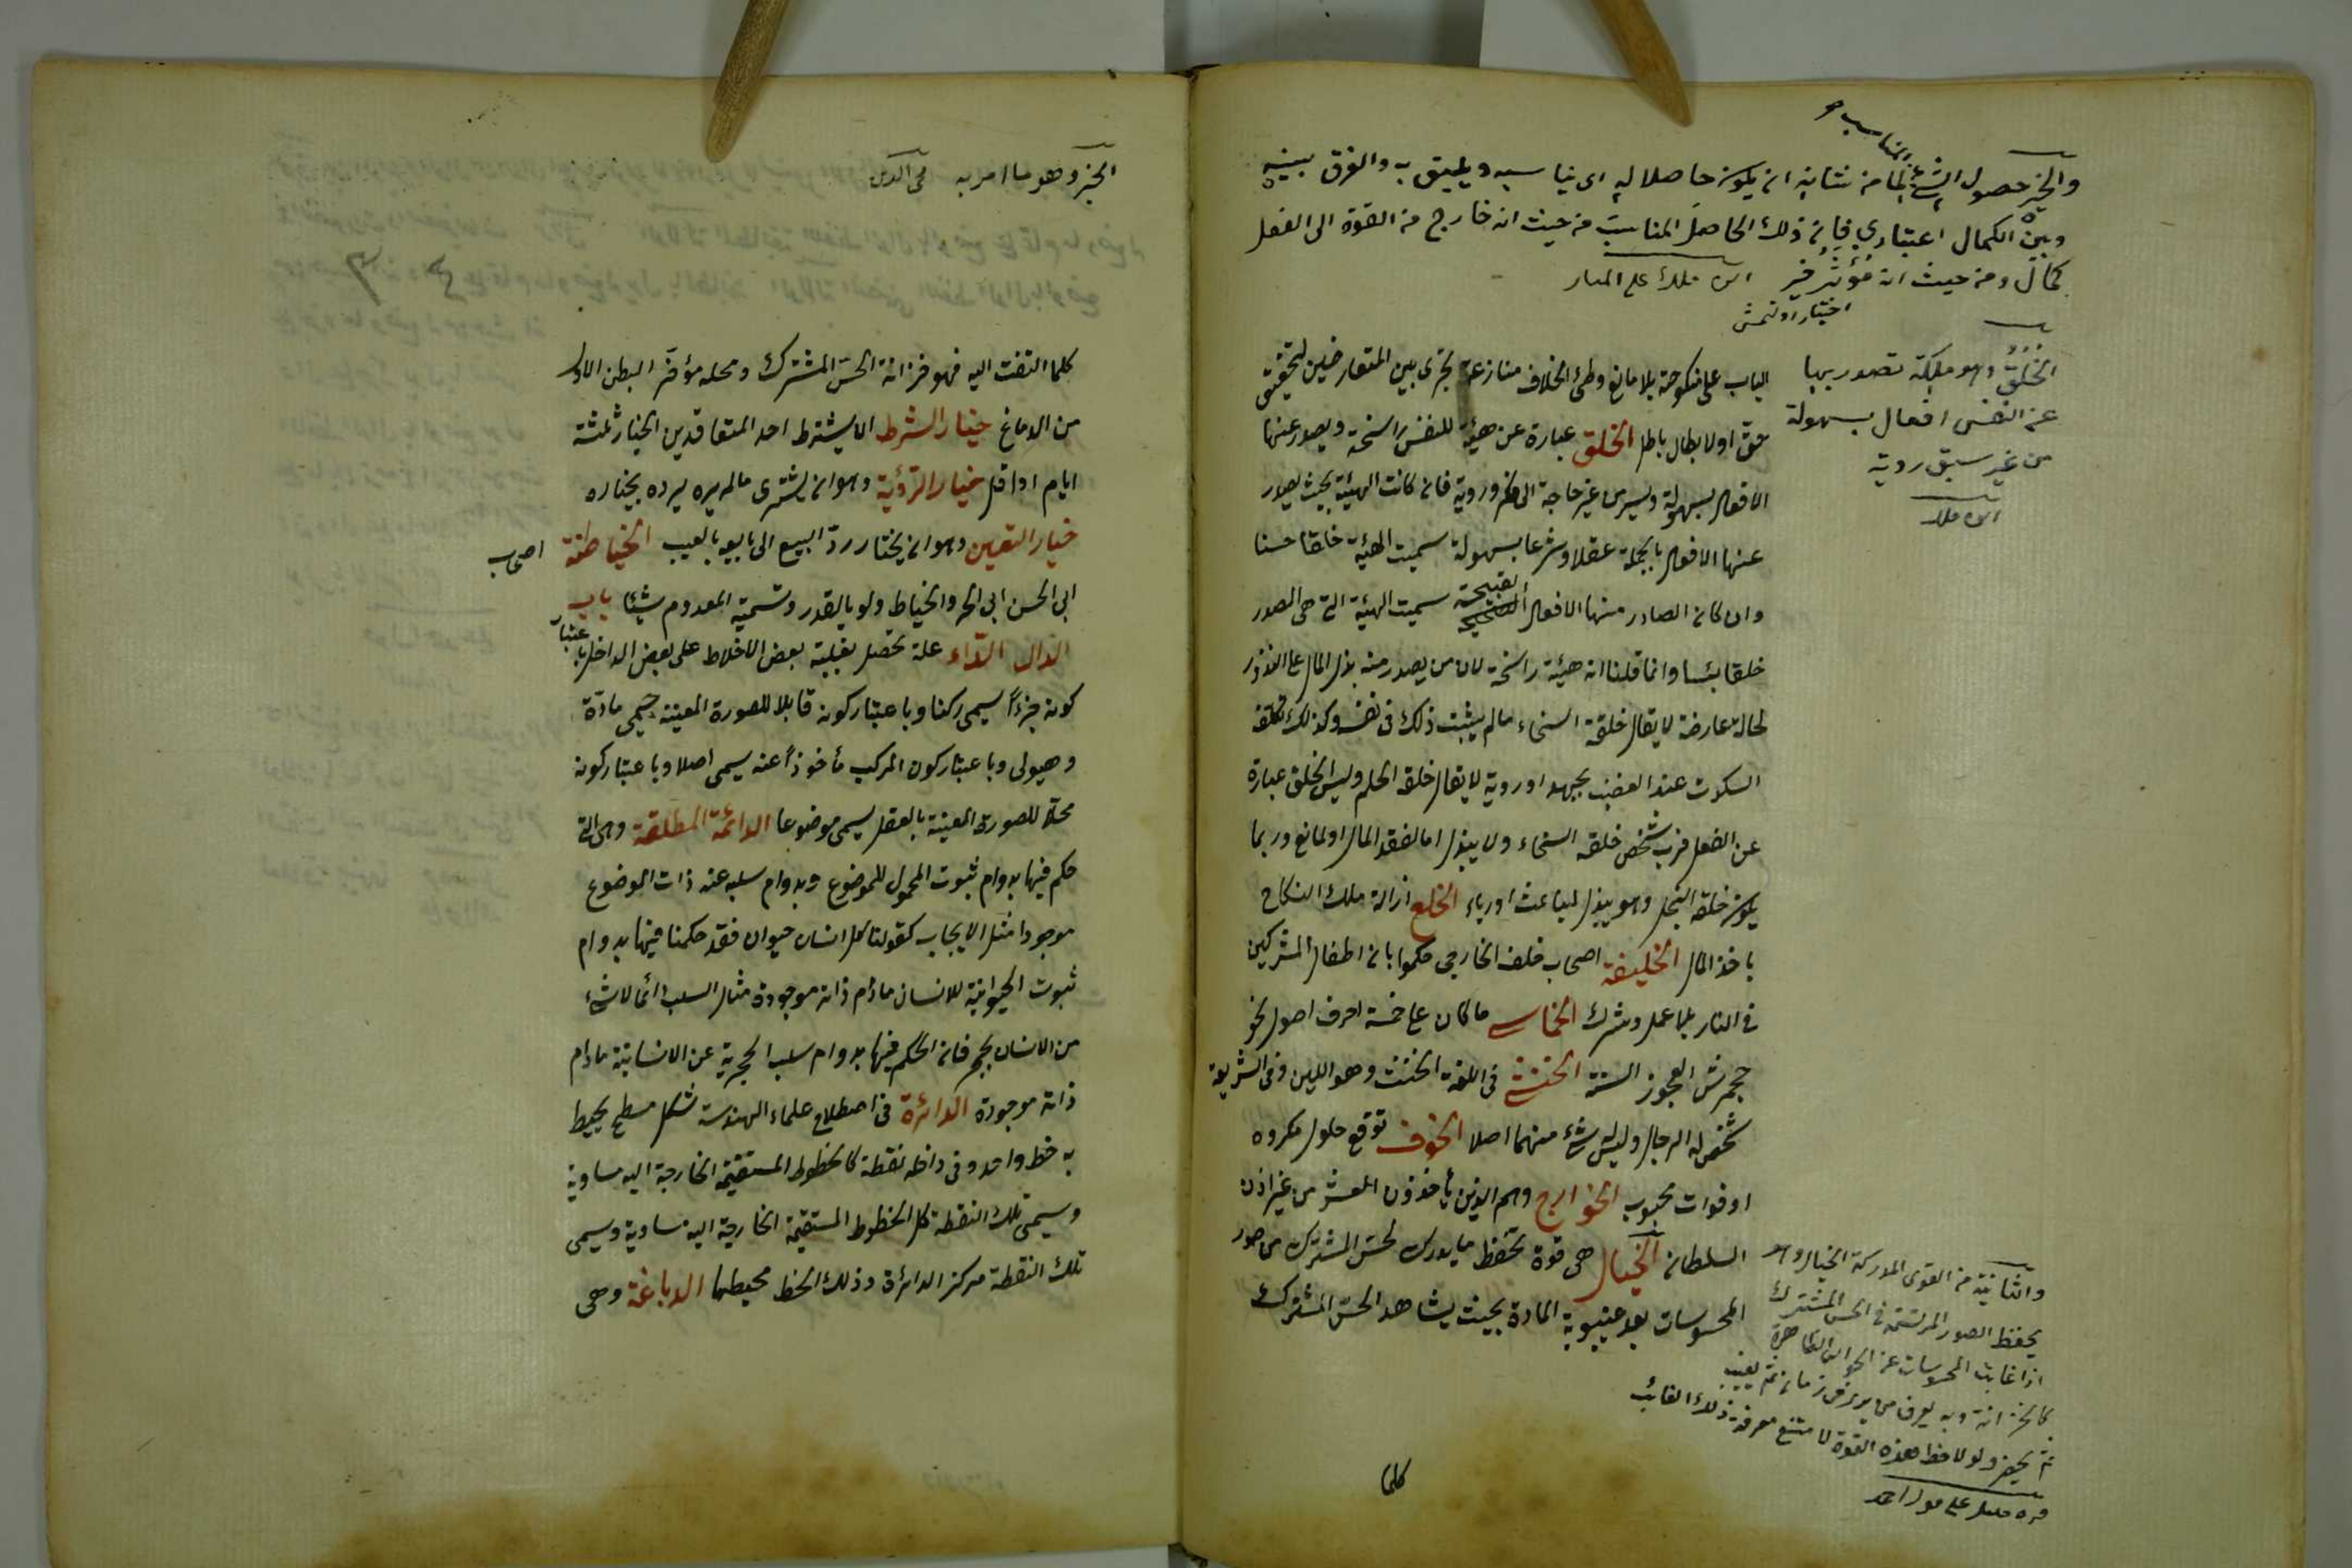 والخير حصول الشئ لما من شانه ان يكون حاصلا له اى يناسبه ويليق به والفرق بينه
المناسب
وبين الكمال اعتبارى فانه ذلك الحاصل المناسب من حيث انه خارج من القوة الى الفعل
كمال ومن حيث انه مؤثر خير ابن ملك على المنار
اختيار اولنمش
الخلق وهو ملكة تصدر بها
عن النفس افعال بسهولة
من غير سبق روية
ابن ملك
الباب على منكوحة بلا مانع وطئ الخلاف منازعة تجرى بين المتعارضين لتحقيق
حق او لابطال باطل الخلق عبارة عن هيئة للنفس راسخة ويصدر عنها
الافعال بسهولة ويسر من غير حاجة الى فكر وروية فان كانت الهيئة بحيث يصدر
عنها الافعال بالجملة عقلا وشرعا بسهولة سميت الهيئة خلقا حسنا
وان كان الصادر منها الافعال القبيحة سميت الهيئة التى هى المصدر
خلقا سيئا وانما قلنا انه هيئة راسخة لان من يصدر منه بذل المال على الندور
لحالة عارضة لا يقال خلقه السخاء مالم يثبت ذلك فى نفسه وكذلك تكلف
السكوت عند الغضب بجهد او روية لا يقال خلقه الحلم وليس الخلق عبارة
عن الفعل فرب شخص خلقه السخاء ولا يبذل اما لفقد المال او لمانع وربما
يكون خلقه البخل وهو يبذل لباعث او رياء الخلع ازالة ملك النكاح
باخذ المال الخليفة اصحاب خلف الخارجى حكموا بان اطفال المشركين
فى النار بلا عمل وشرك الخماسى ما كان على خمسة احرف اصول نحو
جحمرش العجوز المسنة الخنثى فى اللغة الخنث وهو اللين وفى الشريعة
شخص له الرجال وليس شئ منهما اصلا الخوف توقع حلول مكروه
او فوات محبوب الخوارج وهم الذين يأخذون العشر من غير اذن
السلطان الخيال هى قوة تحفظ ما يدرك الحس المشترك من صور
المحسوسات بعد غيبوبة المادة بحيث يشاهد الحس المشترك
والثانية من القوى المدركة الخيال وهو
يحفظ الصور المرتسمة فى الحس المشترك
اذا غابت المحسوسات عن الحواس الظاهرة
كالخزانة وبه يعرف من يرى فى زمان ثم يغيب
ثم يحضر ولولا حفظ هذه القوة لامتنع معرفة ذلك الغائب
كلما
الجزو هو ما امر به محى الدين
كلما التفت اليه فهو خزانة الحس المشترك ومحله مؤخر البطن الاول
من الدماغ خيار الشرط ان يشترط احد المتعاقدين الخيار ثلثة
ايام او اقل خيار الرؤية وهو ان يشترى مالم يره يرده بخياره
خيار التعيين وهو ان يختار رد المبيع الى بايعه بالعيب الخياطية اصحاب
ابى الحسن ابى الحر والخياط ولو بالقدر وتسمية المعدوم شيئا باب
الدال الداء علة تحصل بغلبة بعض الاخلاط على بعض الداخل باعتبار
كونه جزءاً يسمى ركنا وباعتبار كونه قابلا للصورة المعينة يسمى مادة
وهيولى وباعتبار كون المركب مأخوذاً عنه يسمى اصلا وباعتبار كونه
محلاً للصورة المعينة بالعقل يسمى موضوعا الدائمة المطلقة وهى التى
حكم فيها بدوام ثبوت المحمول للموضوع وبدوام سلبه عنه ذات الموضوع
موجودا مثل الايجاب كقولنا كل انسان حيوان فقد حكمنا فيها بدوام
ثبوت الحيوانية للانسان مادام ذاته موجودة مثال السلب دائما لا شئ
من الانسان بحجر فان الحكم فيها بدوام سلب الحجرية عن الانسانية مادام
ذاته موجودة الدائرة فى اصطلاح علماء الهندسة شكل مسطح يحيط
به خط واحد وفى داخله نقطة كالخطوط المستقيمة الخارجة اليه مساوية
وسيمى تلك النقطة كل الخطوط المستقيمة الخارجة اليه مساوية وسيمى
تلك النقطة مركز الدائرة وذلك الخط محيطها الدباغة وهى